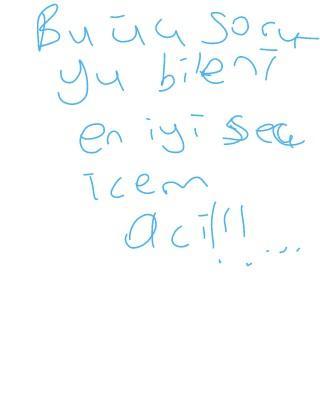 Bu üç soru
yu bileni
en iyi seç
icem
acil!!!.....